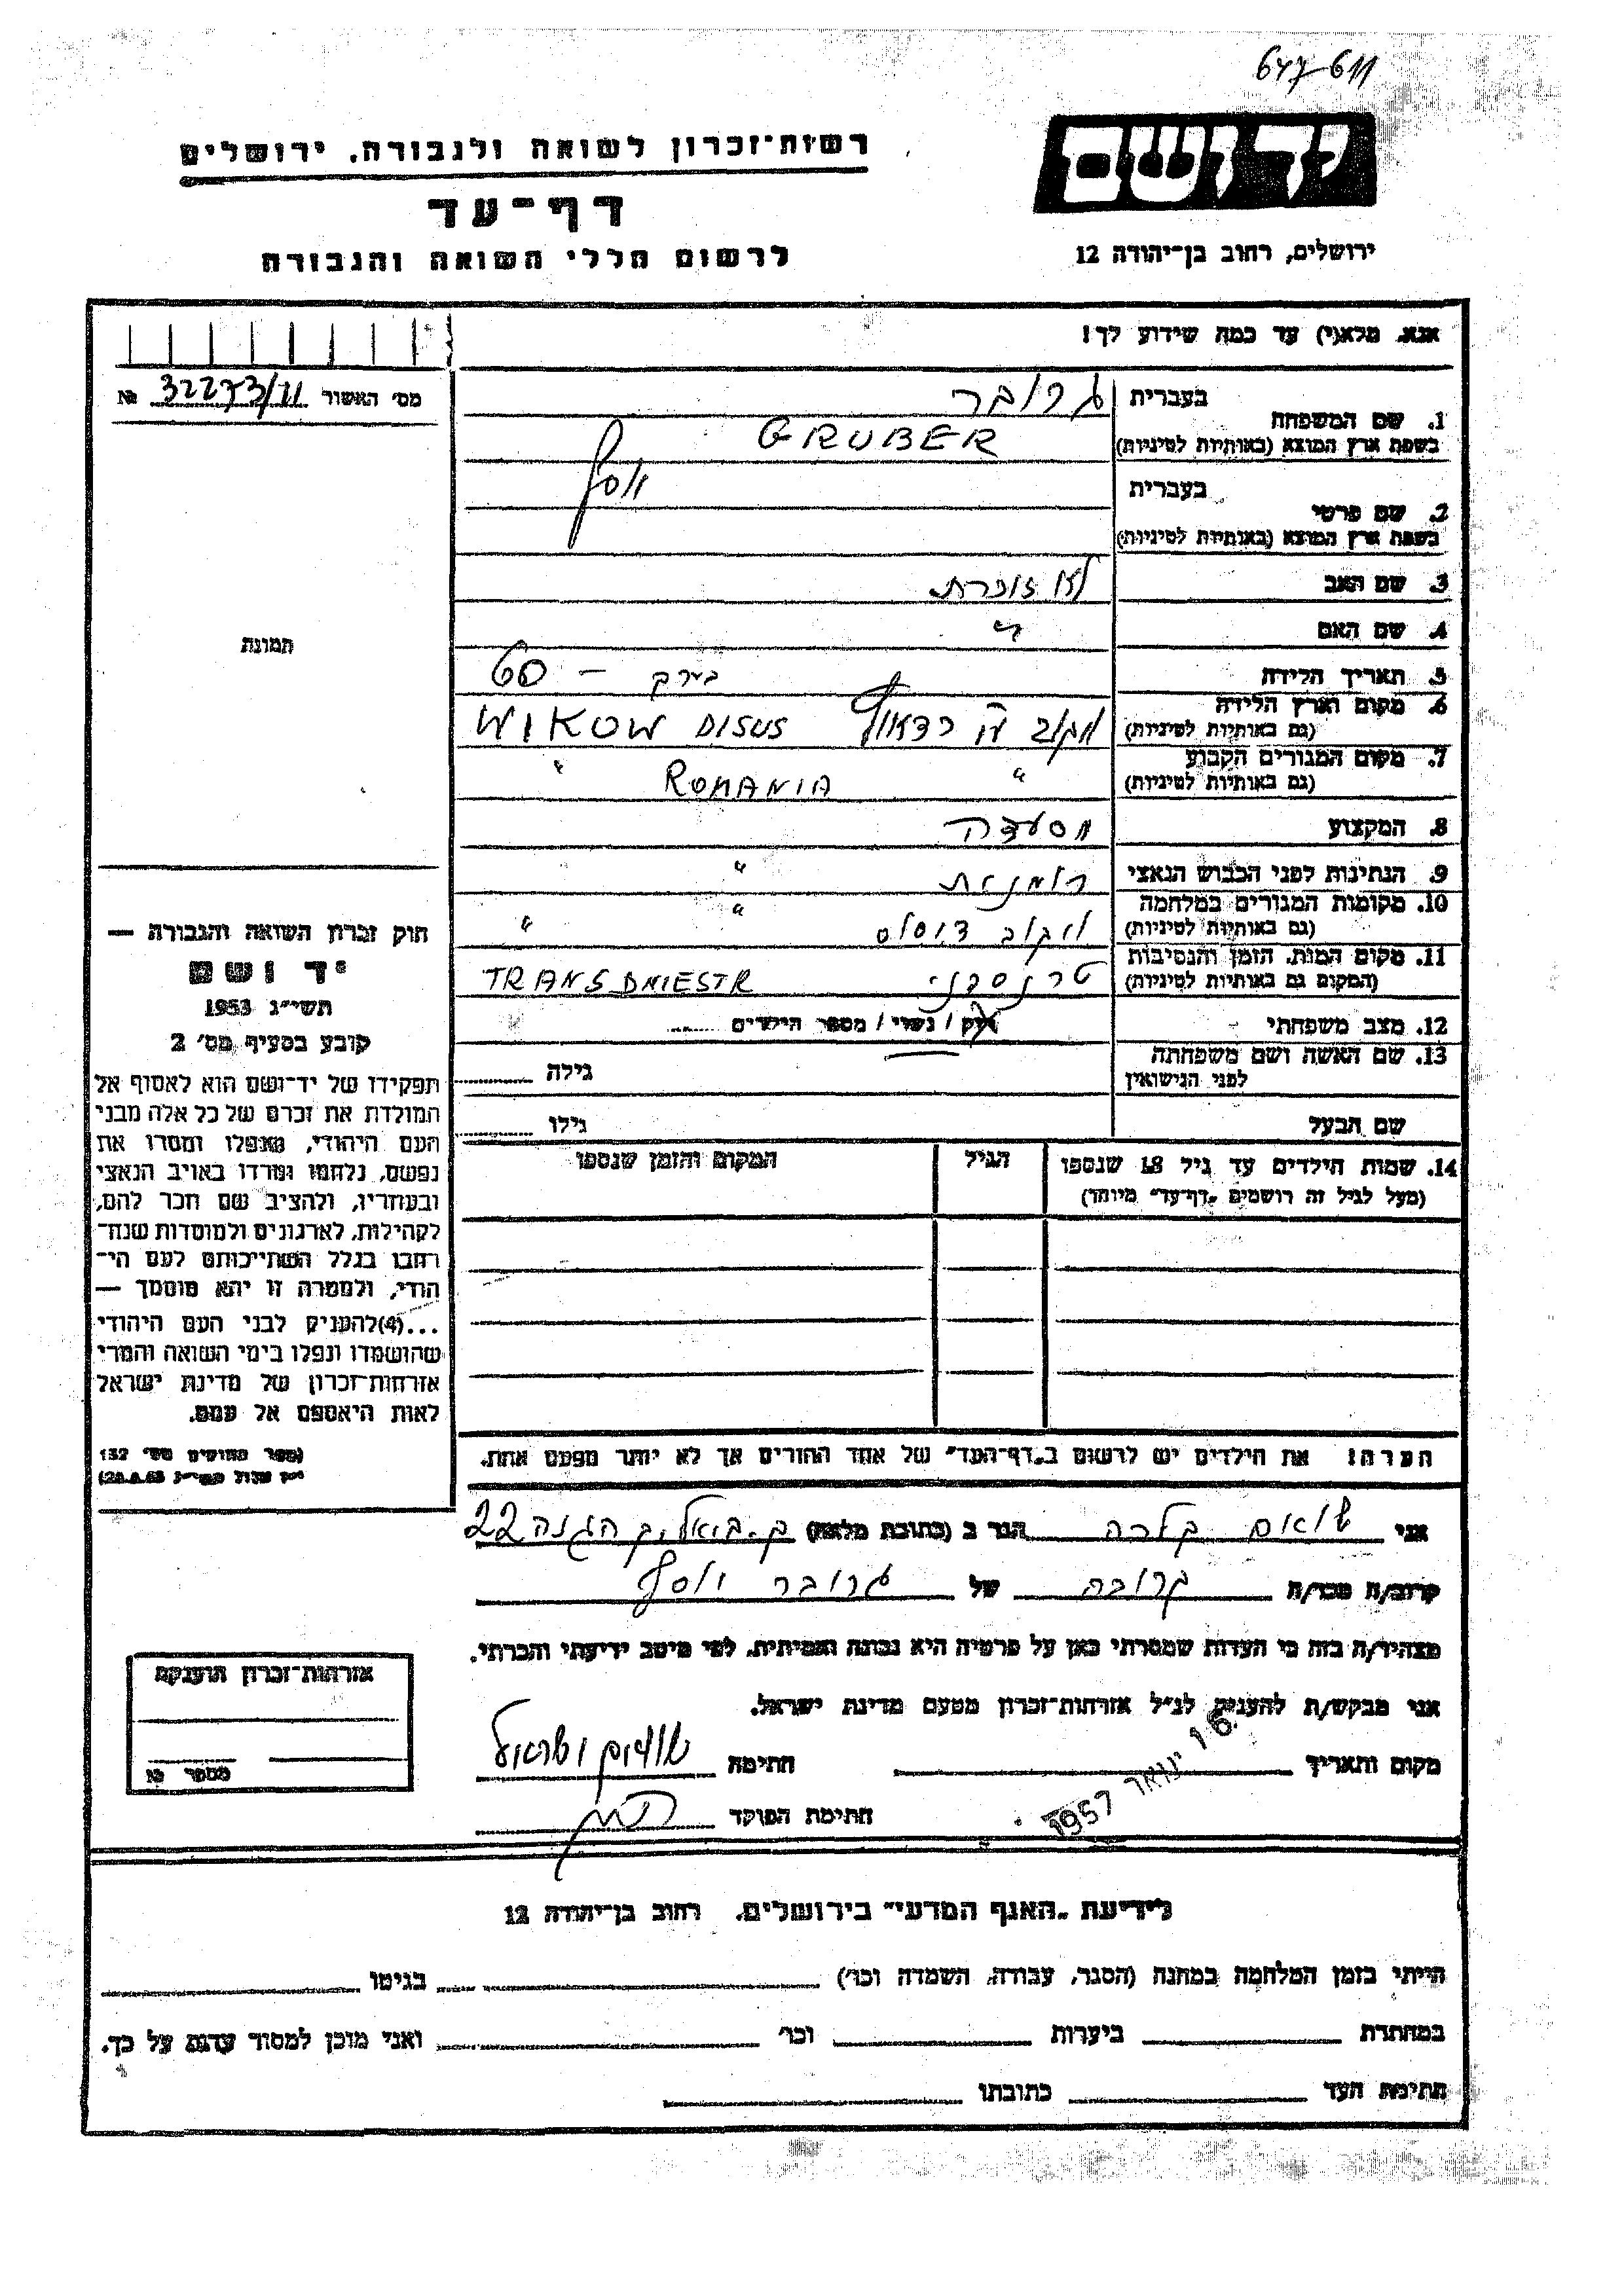 647-611
יד ושם
ירושלים, רחוב בן־יהודה 12
רשות־זכרון לשואה ולגבורה, ירושלים
דף־עד
לרשום חללי השואה והגבורה
אנא, מלא(י) עד כמה שידוע לך!
מס׳ האשור 32273/71 №
1. שם המשפחה בעברית גרובר
בשפת ארץ המוצא (באותיות לטיניות) GRUBER
2. שם פרטי בעברית יוסף
בשפת ארץ המוצא (באותיות לטיניות)
3. שם האב לא זוכרת
4. שם האם "
5. תאריך הלידה בערך – 60
6. מקום וארץ הלידה
(גם באותיות לטיניות) WIKOW DISUS
7. מקום המגורים הקבוע
(גם באותיות לטיניות) " ROMANIA "
8. המקצוע מסעדה
9. הנתינות לפני הכבוש הנאצי רומנית "
10. מקומות המגורים במלחמה
(גם באותיות לטיניות) ויקוב דיסוס " "
11. מקום המות, הזמן והנסיבות
(המקום גם באותיות לטיניות) TRANSDNIESTR
12. מצב משפחתי רווק / נשוי / מספר הילדים
13. שם האשה ושם משפחתה
לפני הנישואין גילה
שם הבעל גילו
14. שמות הילדים עד גיל 18 שנספו הגיל המקום והזמן שנספו
(מעל לגיל זה רושמים „דף־עד” מיוחד)
הערה: את הילדים יש לרשום ב„דף־העד” של אחד ההורים אך לא יותר מפעם אחת.
תמונה
חוק זכרון השואה והגבורה —
יד ושם
תשי״ג 1953
קובע בסעיף מס׳ 2
תפקידו של יד־ושם הוא לאסוף אל
המולדת את זכרם של כל אלה מבני
העם היהודי, שנפלו ומסרו את
נפשם, נלחמו ומרדו באויב הנאצי
ובעוזריו, ולהציב שם וזכר להם,
לקהילות, לארגונים ולמוסדות שנח־
רבו בגלל השתייכותם לעם הי־
הודי, ולמטרה זו יהא מוסמך —
...(4) להעניק לבני העם היהודי
שהושמדו ונפלו בימי השואה והמרי
אזרחות־זכרון של מדינת ישראל
לאות היאספם אל עמם.
(ספר החוקים מס׳ 132
י״ז אלול תשי״ג 28.8.53)
אני שואם קלרה הגר ב (כתובת מלאה) ק. ביאליק הגנה 22
קרוב/ה מכר/ה קרובה של גרובר יוסף
מצהיר/ה בזה כי העדות שמסרתי כאן על פרטיה היא נכונה ואמיתית, לפי מיטב ידיעתי והכרתי.
אני מבקש/ת להעניק לנ״ל אזרחות־זכרון מטעם מדינת ישראל.
מקום ותאריך 16 ינואר 1957 חתימה
חתימת הפוקד
אזרחות־זכרון תוענקה
מספר
לידיעת „האגף המדעי” בירושלים, רחוב בן־יהודה 12
הייתי בזמן המלחמה במחנה (הסגר, עבודה, השמדה וכו׳) בגיטו
במחתרת ביערות וכו׳ ואני מוכן למסור עדות על כך.
חתימת העד כתובתו